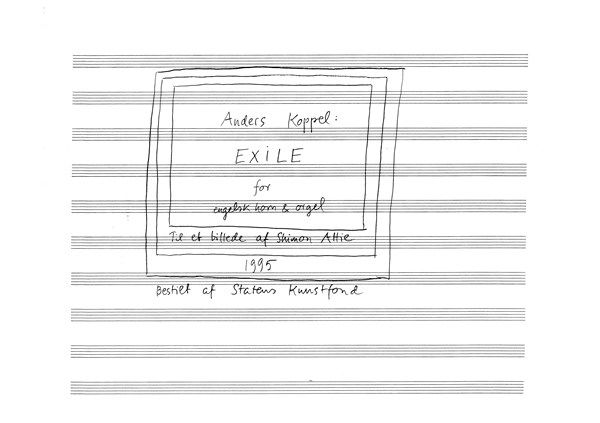 Anders Koppel:
EXiLE
for
engelsk horn & orgel
Til et billede af Shimon Attie
1995
Bestilt af Statens Kunstfond